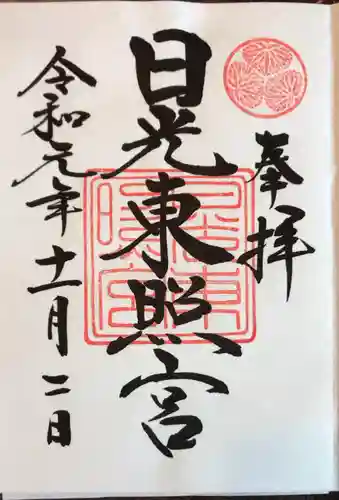 奉拝
日光東照宮
令和元年十一月二日